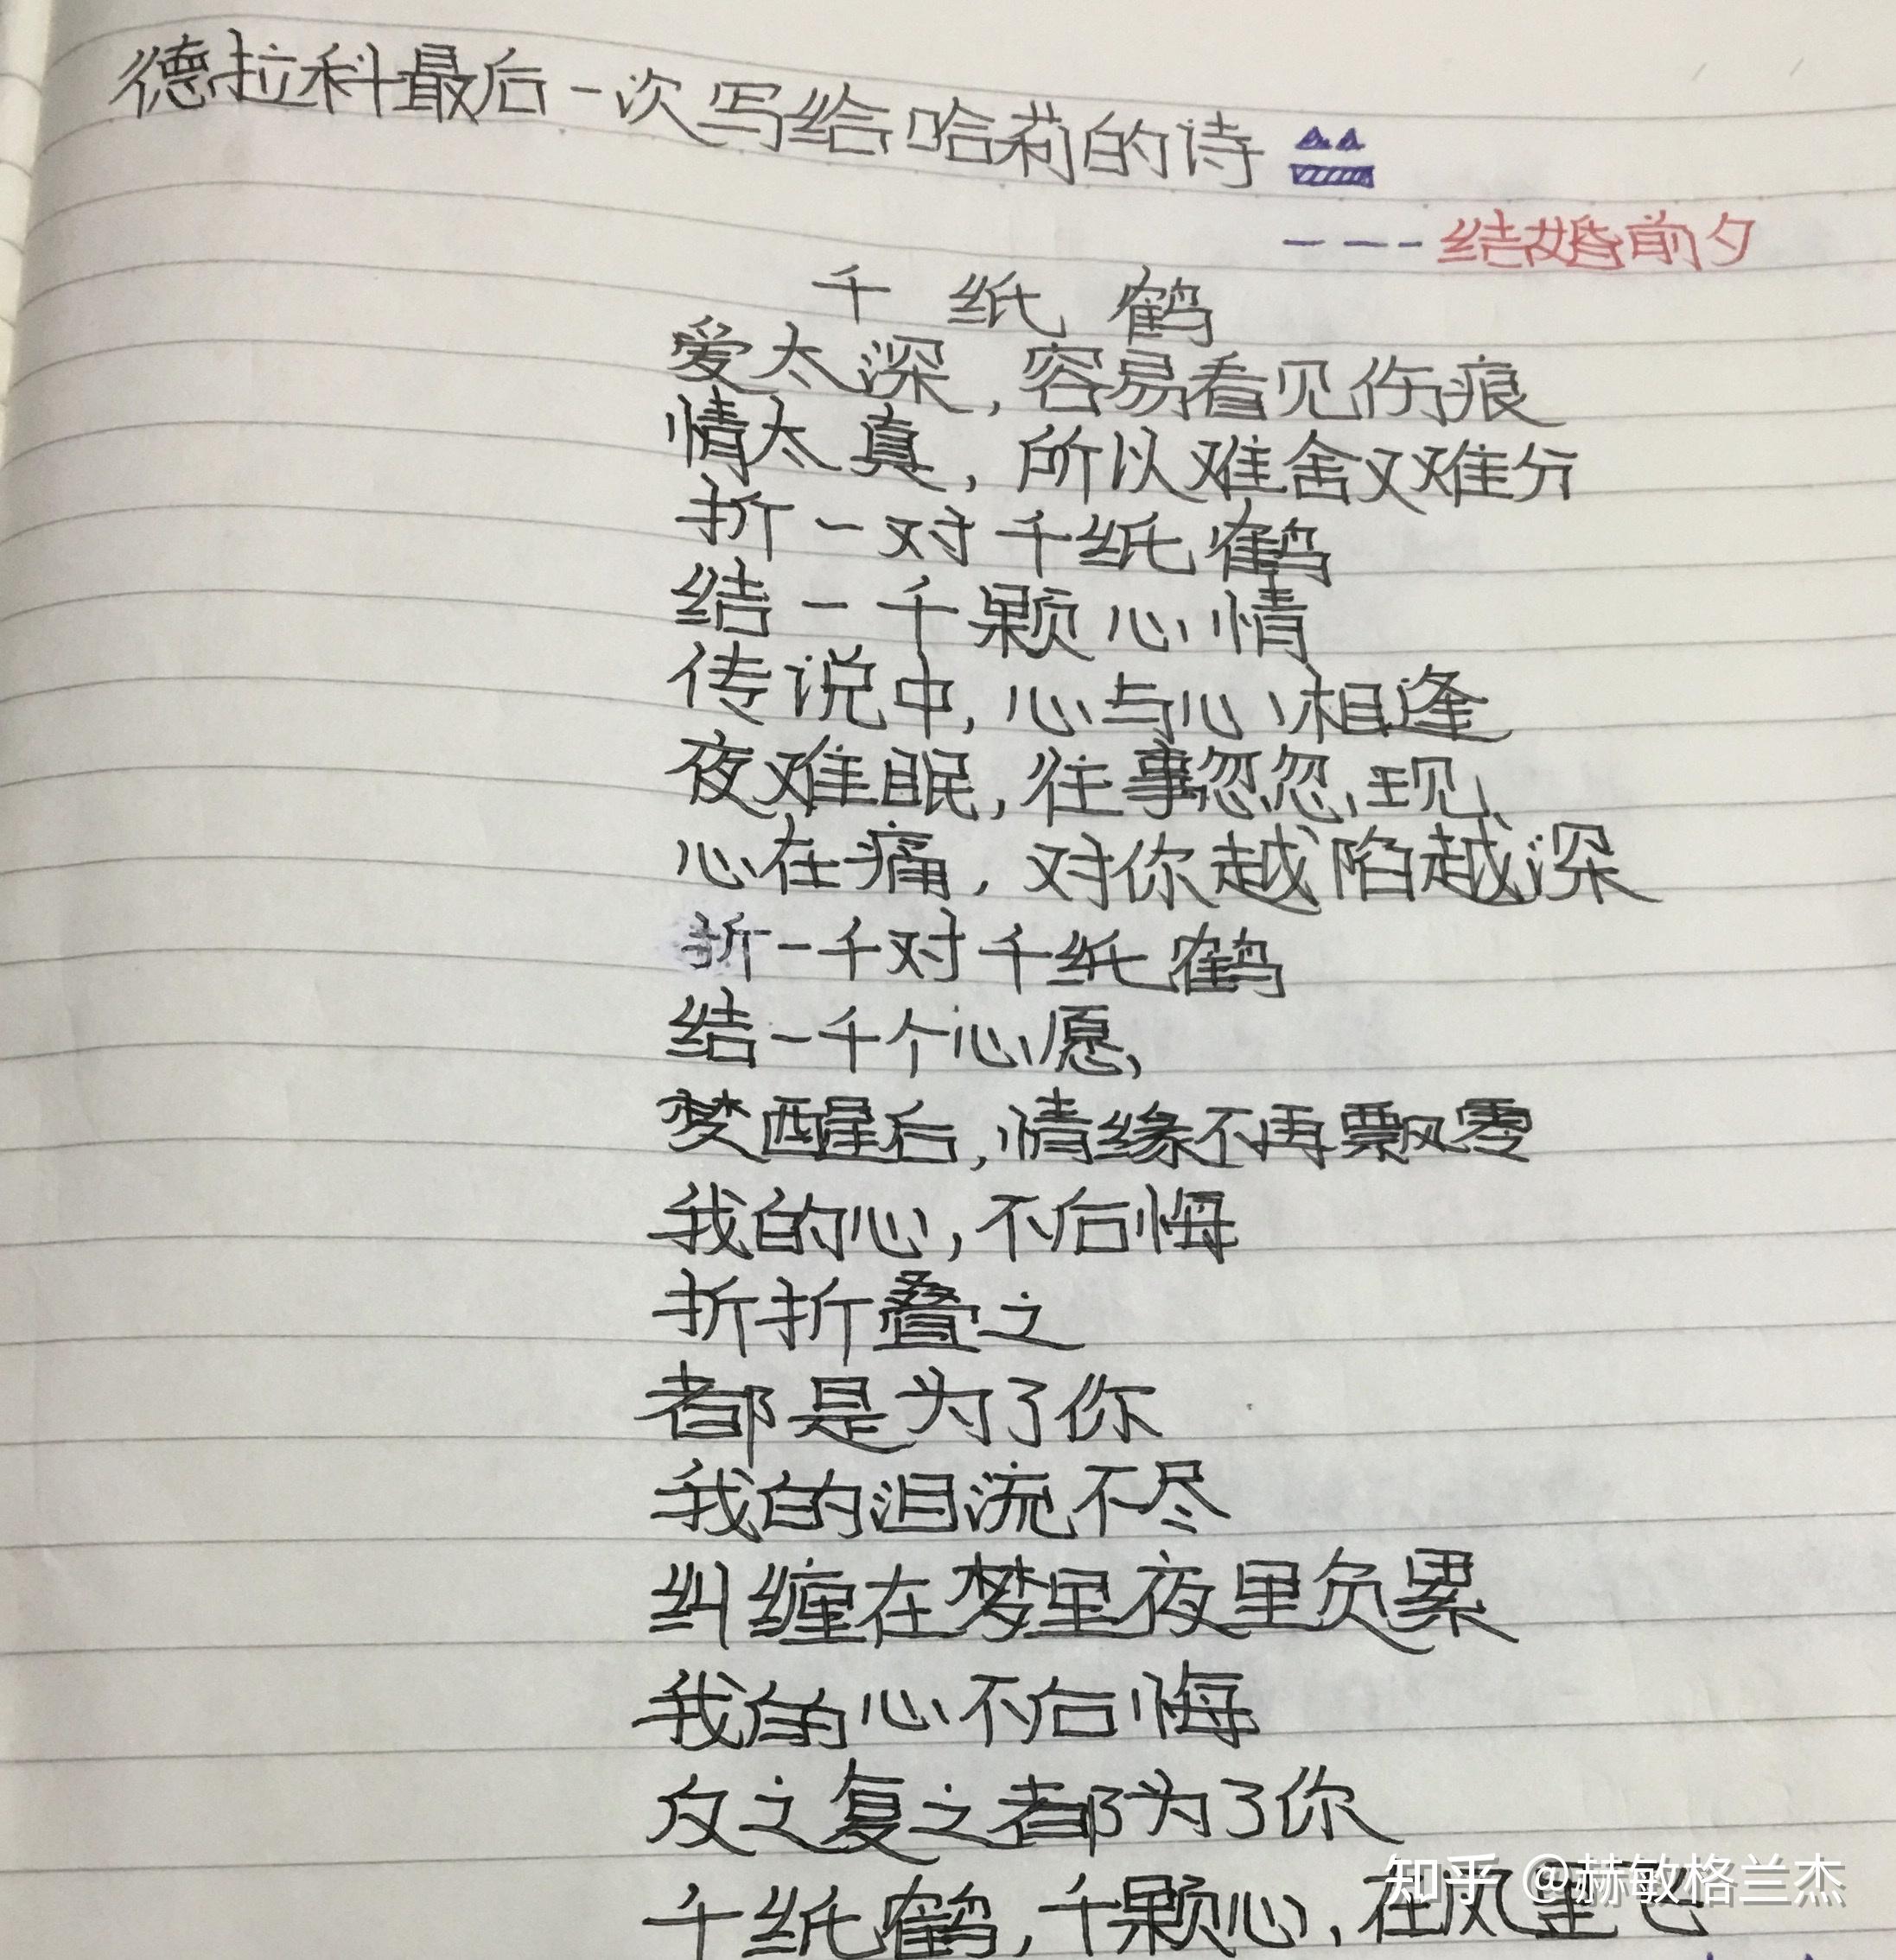 德拉科最后一次写给哈莉的诗
---结婚前夕
千纸鹤
爱太深,容易看见伤痕
情太真,所以难舍又难分
折一对千纸鹤
结一千颗心情
传说中,心与心相逢
夜难眠,往事忽忽现
心在痛,对你越陷越深
折一千对千纸鹤
结一千个心愿,
梦醒后,情缘不再飘零
我的心,不后悔
折折叠之
都是为了你
我的泪流不尽
纠缠在梦里夜里负累
我的心不后悔
反之复之都为了你
千纸鹤,千颗心,在风里飞
知乎 @赫敏格兰杰